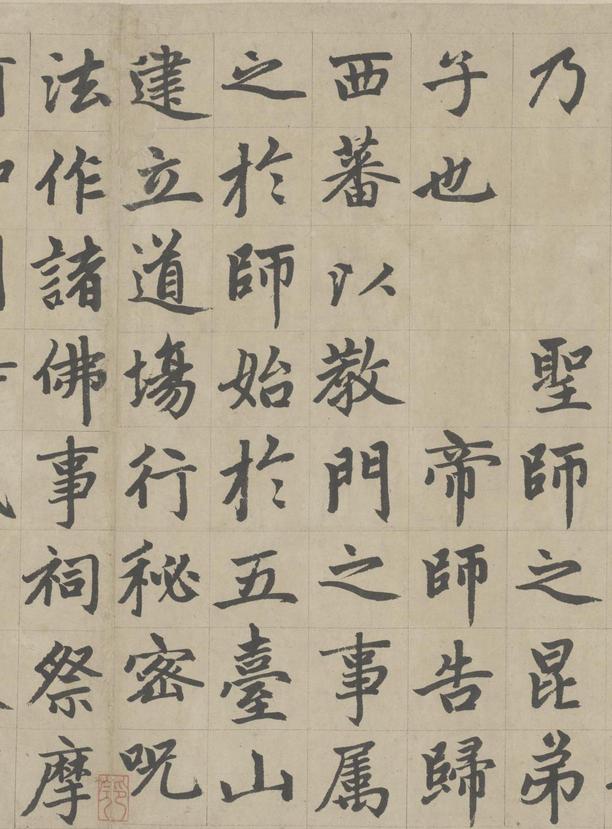 乃聖師之昆弟
子也帝師告歸
西蕃以教門之事属
之於師始於五臺山
建立道場行秘密呪
法作諸佛事祠祭摩